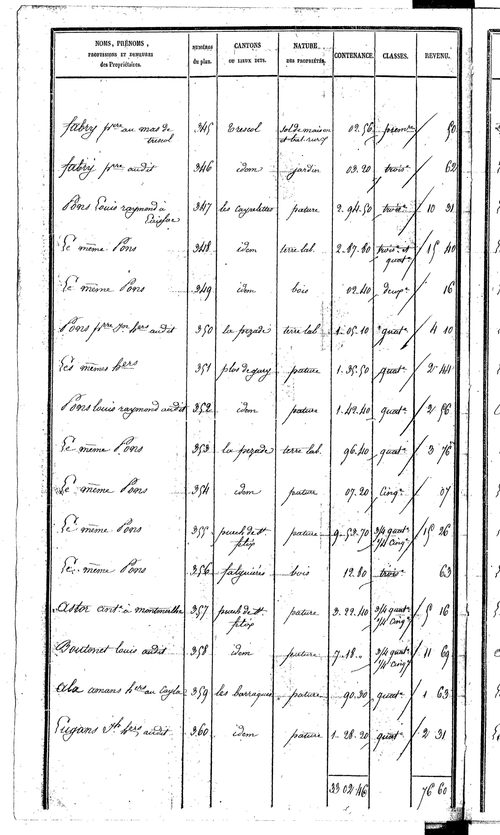 NOMS, PRÉNOMS, PROFESSIONS ET DEMEURES des Propriétaires. NUMÉROS du plan. CANTONS OU LIEUX DITS. NATURE DES PROPRIÉTÉS. CONTENANCE. CLASSES. REVENU.
fabry pre au mas de trescol 345 trescol sol de maison 02.56 prem.re 50
fabry pre audit 346 idem jardin 03.20 trois.e 62
Pons Louis raymond à 347 les cayrelettes pature 2.94.50 trois.e 10 31
Le même Pons 348 idem terre lab. 2.87.80 trois.e et quat.e 15 40
Le même Pons 349 idem bois 02.40 deux.e 16
Pons hers audit 350 la pezade terre lab 1.05.10 quat.e 4 10
Les mêmes hers 351 plos de gary pature 1.35.50 quat.e 2 44
Pons louis raymond audit 352 idem pature 1.42.40 quat.e 2 56
Le même Pons 353 la pezade terre lab. 96.40 quat.e 3 76
Le même Pons 354 idem pature 07.20 cinq.e 07
Le même Pons 355 puech de st felix pature 9.53.70 3/4 quat.e 1/4 cinq.e 15 26
Le même Pons 356 falguières bois 12.80 trois.e 63
astor ant.e à 357 puech de st felix pature 3.22.40 3/4 quat.e 1/4 cinq.e 5 16
Boutonet louis audit 358 idem pature 7.18 3/4 quat.e 1/4 cinq.e 11 69
amans hers au Cayla 359 les barraques pature 90.30 quat.e 1 63
hers audit 360 idem pature 1.28.20 quat.e 2 31
33 02 46 76 60